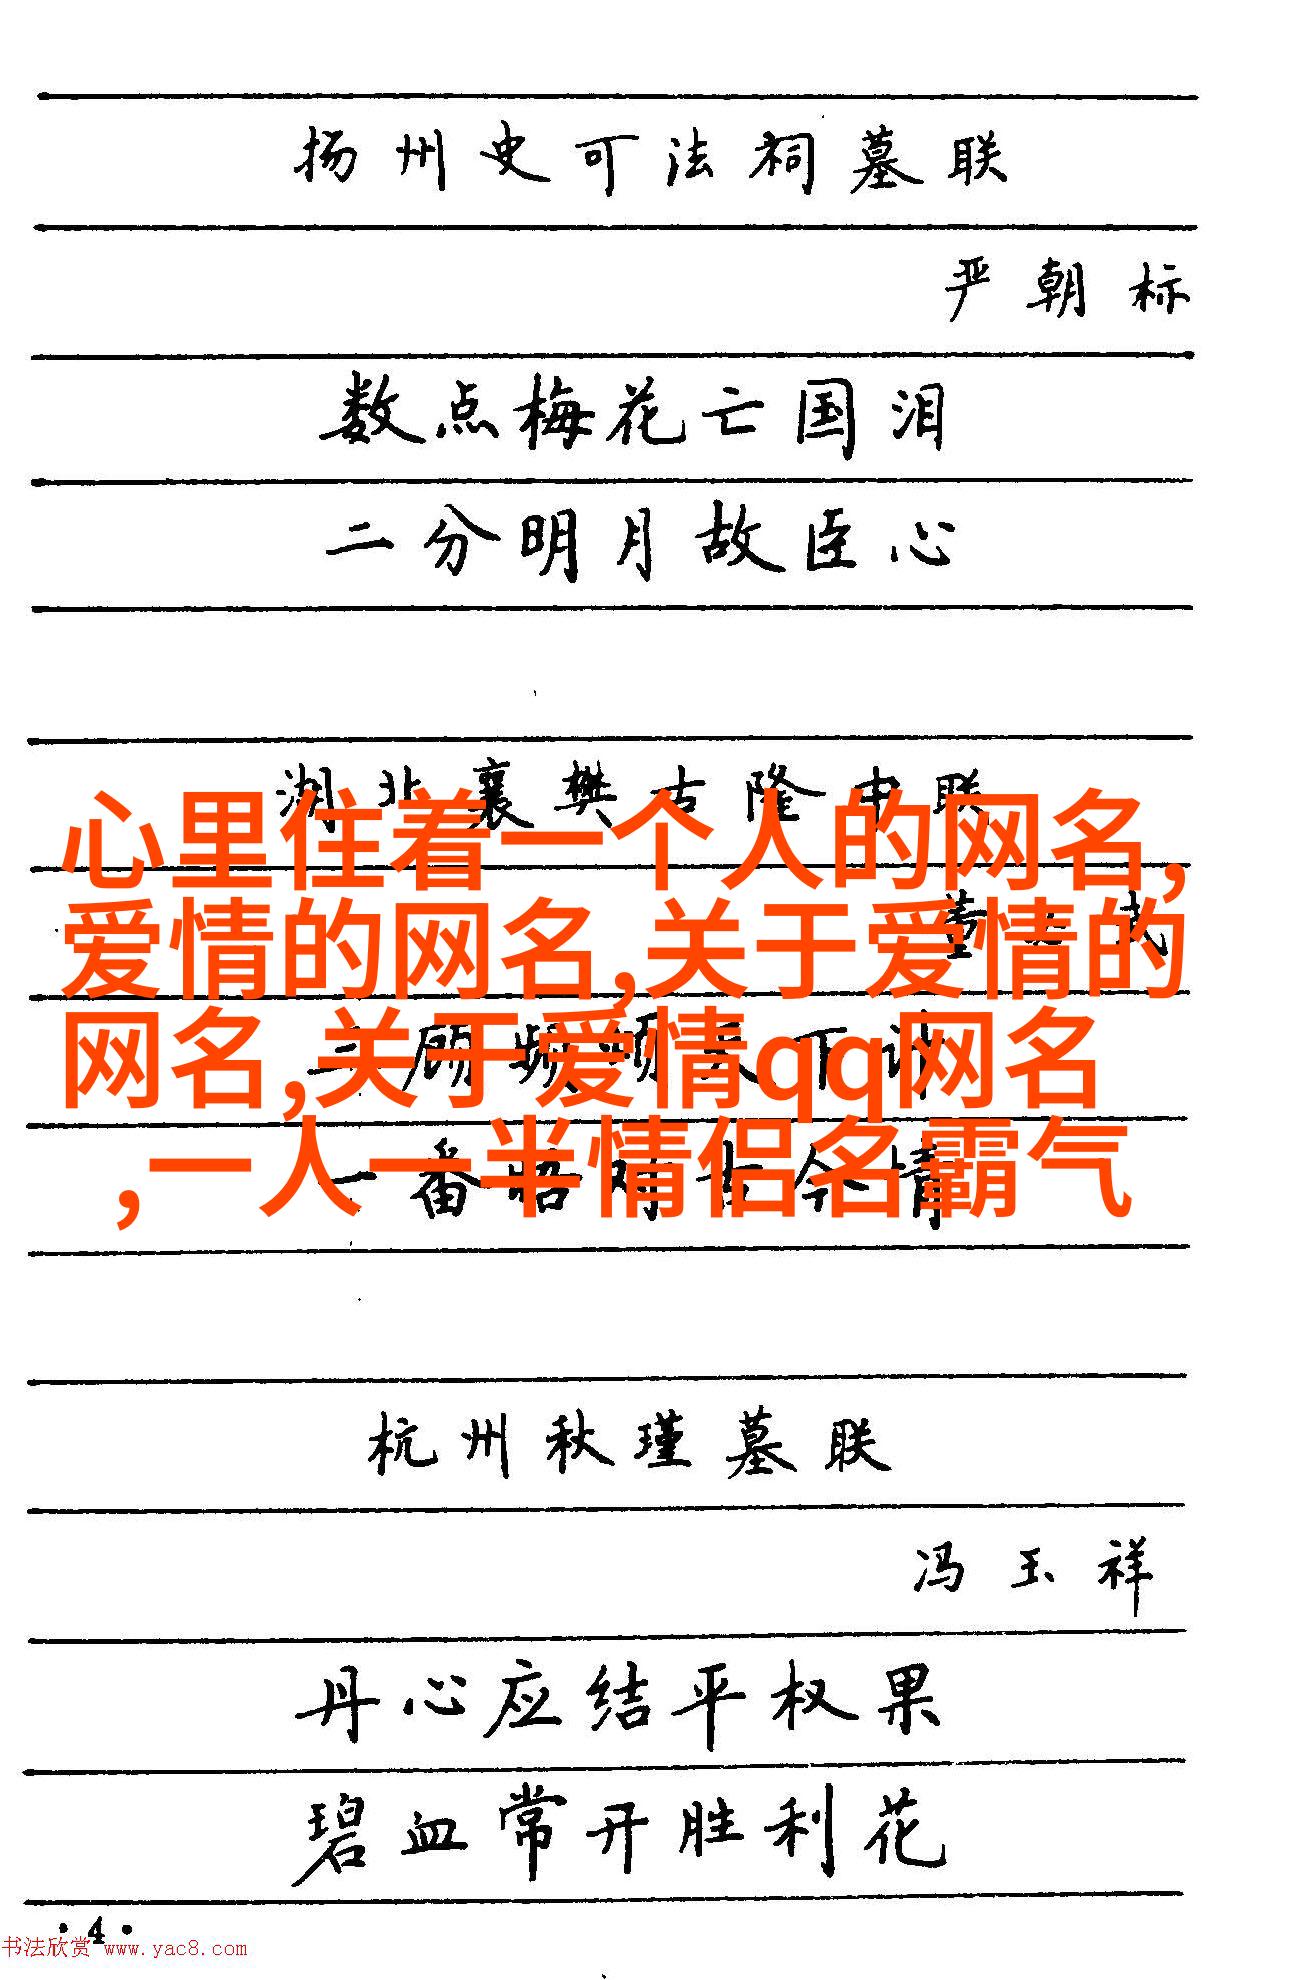 扬州史可法祠墓联
严朝标
数点梅花亡国泪
二分明月故臣心
湖北襄樊古隆中联
心里住着一个人的网名,
董必武
爱情的网名,关于爱情的
三顾频烦天下计
网名,关于爱情qq网名
一番晤对古今情
,一人一半情侣名霸气
杭州秋瑾墓联
冯玉祥
丹心应结平权果
碧血常开胜利花
·4·
书法欣赏 www.yac8.com